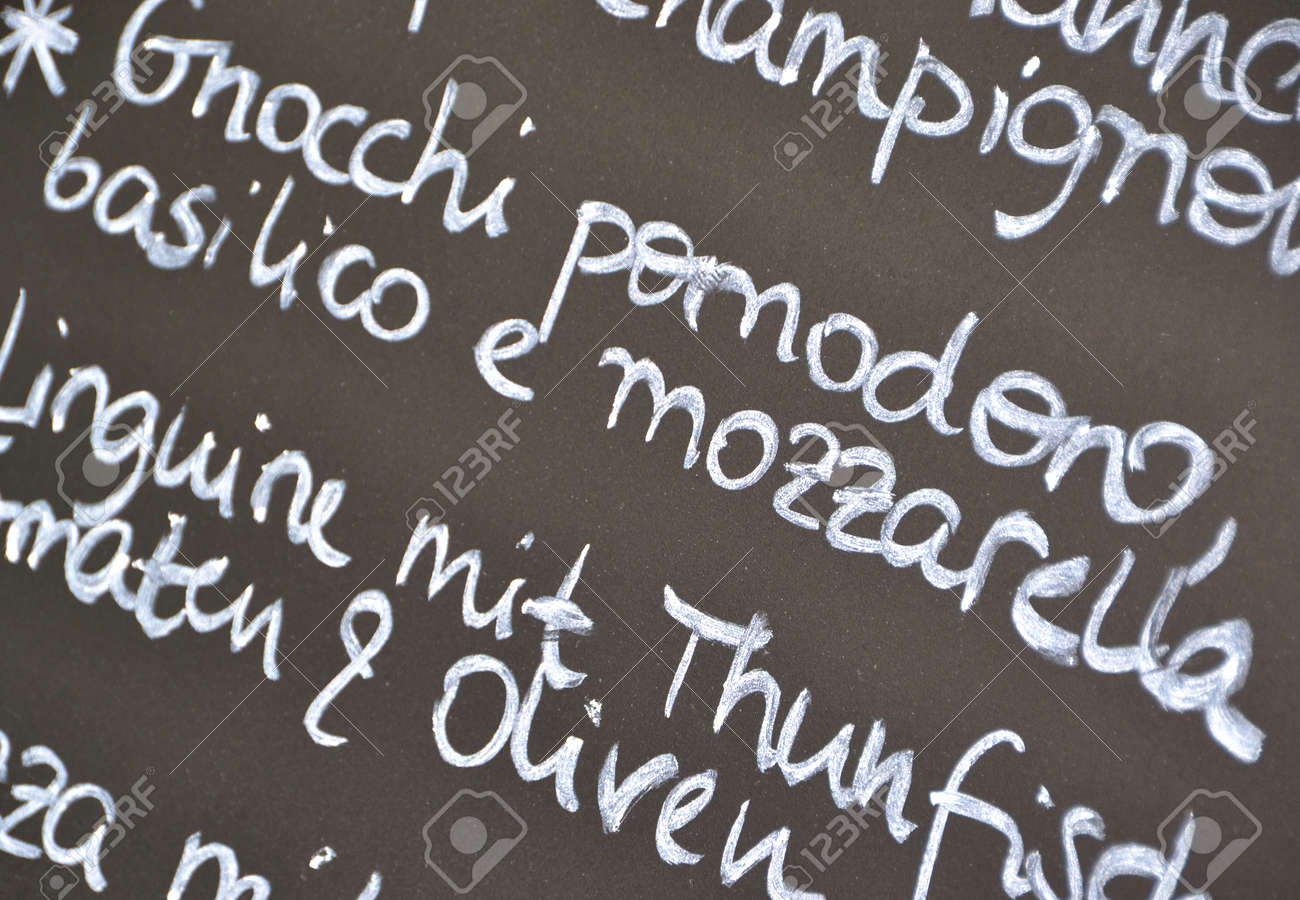 Champignon
* Gnocchi pomodoro
basilico e mozzarella
Linguine mit Thunfisch
maten & Oliven
zza mi